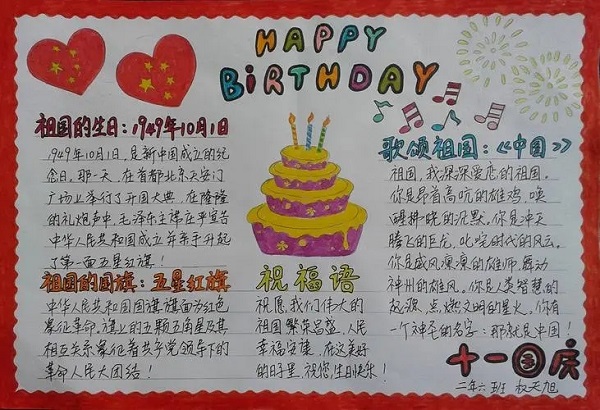 HAPPY
BiRTHDAY
祖国的生日：1949年10月1日
1949年10月1日，是新中国成立的纪
念日。那一天，在首都北京天安门
广场上举行了开国大典，在隆隆
的礼炮声中，毛泽东主席庄严宣告
中华人民共和国成立并亲手升起
了第一面五星红旗！
祖国的国旗：五星红旗
中华人民共和国国旗旗面为红色
象征革命，旗上的五颗五角星及其
相互关系象征着共产党领导下的
革命人民大团结！
祝福语
祝愿我们伟大的
祖国繁荣昌盛，人民
幸福安康，在这美好
的日子里，祝您生日快乐！
歌颂祖国：《中国》
祖国，我深深爱恋的祖国。
你是昂首高吭的雄鸡，唤
醒拂晓的沉默，你是冲天
腾飞的巨龙，叱咤时代的风云，
你是威风凛凛的雄狮，舞动
神州的雄风，你是人类智慧的
起源，点燃文明的星火。你有
一个神圣的名字：那就是中国！
十一国庆
二年六班 权天旭